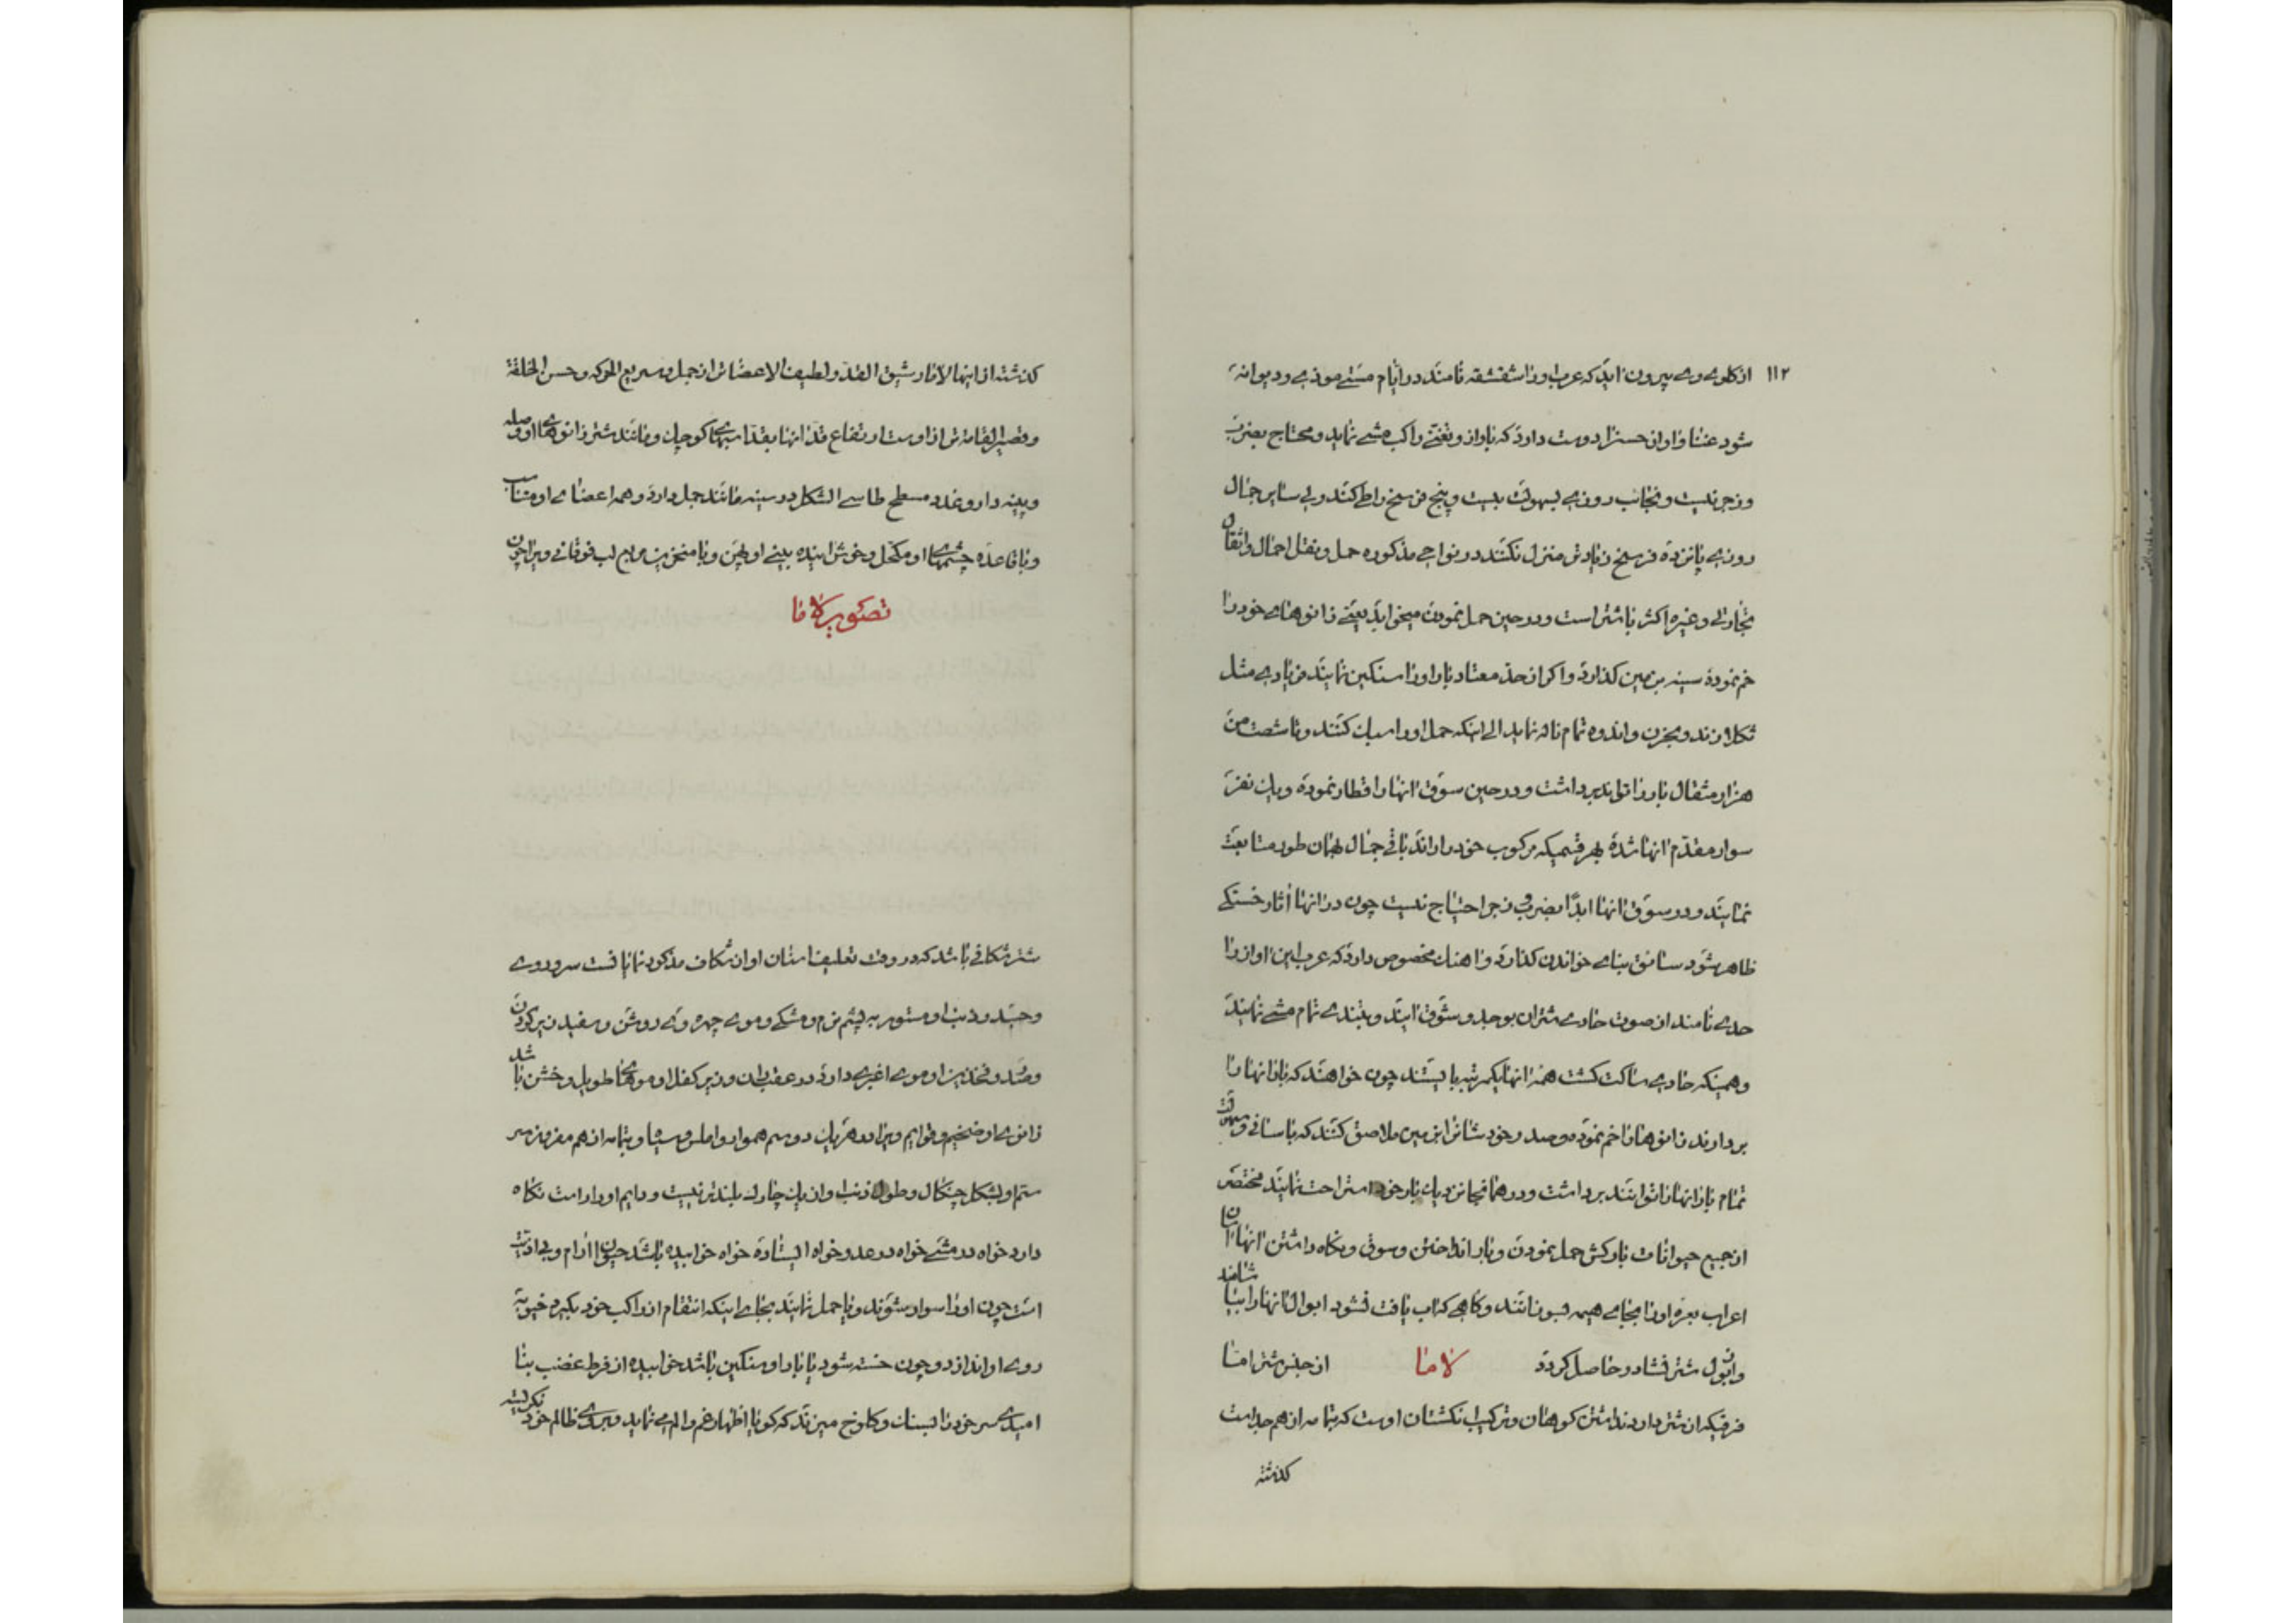 ۱۱۲
از کلوی وی بیرون آید که عرب او را شقشقه نامند در ایام مستی موذی و دیوانه
شود غنا و اوازن حسن را دوست دارد که باواز و تغنی راکب مشی نماید و محتاج بضرب
و زجر نیست و نجائب روزی بسهولت بیست و پنج فرسخ راطی کنند ولی سایر جمال
روزی پانزده فرسخ زیادتر منزل نکنند در نواحی مذکوره حمل و نقل احمال و اثقال
تجارتی و غیره اکثر با شتر است و در حین حمل نمودن میخوابد یعنی زانوهای خود را
خم نموده سینه بزمین کذارد و اکر از حد معتاد بار او را سنکین نمایند فریادی مثل
تکلم زند و بحزن و اندوه تمام ناله نماید الی اینکه حمل او را سبک کنند و تا شصت من
هزار مثقال بار را تواند برداشت و در حین سوق انها را قطار نموده و یک نفر
سوار مقدم انها شده بهر قسمیکه مرکوب خود را راند باقی جمال بهمان طور متابعت
نمایند و در سوق انها ابداً بضرب و زجر احتیاج نیست چون در انها آثار خستکی
ظاهر شود سائق بنای خواندن کذارد و اهنک مخصوص دارد که عرب این اواز را
حدی نامند از صوت حادی شتران بوجد و شوق ایند و بتندی تمام مشی نمایند
و همینکه حادی ساکت کشت همه انها یکمرتبه بایستند چون خواهند که بار انها را
بردارند زانوهارا خم نموده و صدر خود شانرا بزمین ملاصق کنند که باسانی و سهولت
تمام بار انها را توانند برداشت و در همانجا نزدیک بار خود استراحت نمایند مختصر
از جمیع حیوانات بارکش حمل نمودن و بار انداختن و سوق و نکاه داشتن انها اسان
اعراب بعره او را بجای هیمه بسوزانند و کاهی که اب یافت نشود ابوال انها را بیاشامند
و از بول شتر نشادر حاصل کردد لاما از جنس شتر اما
فرقیکه از شتر دارد نداشتن کوهان و ترکیب انکشتان اوست که بتمامه از هم جداست
کذشته
کذشته از اینها لاما رشیق القد و لطیف الاعضاتر از جمل و سریع الحرکه و حسن الخلقة
و قصیر القامه تر از اوست ارتفاع قد انها بقد اسبهای کوچک و مانند شتر زانوهای او وصله
و پینه دار و غدد مسطح طاسی الشکل در سینه مانند جمل دارد و همه اعضای او متناسب
و باقاعده چشمهای او مکحل و خوش اینده بینی او پهن و با منخرین مربع لب فوقانی ویرا چون
تصویر لاما
شتر شکافی باشد که در وقت تعلیف اسنان او از شکاف مذکور نمایانست سر و روی
و جسد و ذنب او مستور به پشم نرم و مشکی و موی چهره وی روشن و سفید زیر کردن
و صدر و فخذین او موی اغبری دارد در عقب ران و زیر کفل او موهای طویل و خشن باشد
زانوی او ضخیم و قوایم ویرا در هر یک دو سم هموار و املس و سیاه و بتمامه از هم مفروز سر
سم او بشکل چنکال و طول ذنب او از یک چارک بلندتر نیست و دایم او را راست نکاه
دارد خواه در مشی خواه در عدو خواه ایستاده خواه خوابیده باشد حیوان ارام و بی اذیت
است چون او را سوار شوند و یا حمل نمایند بجای اینکه انتقام از راکب خود بکیرد خیو به
روی او اندازد و چون خسته شود یا بار او سنکین باشد خوابیده از فرط غضب بنا
امیدی سر خود را بسنک و کلوخ میزند که کویا اظهار غم و الم می نماید و بسوی ظالم خود نکریسته